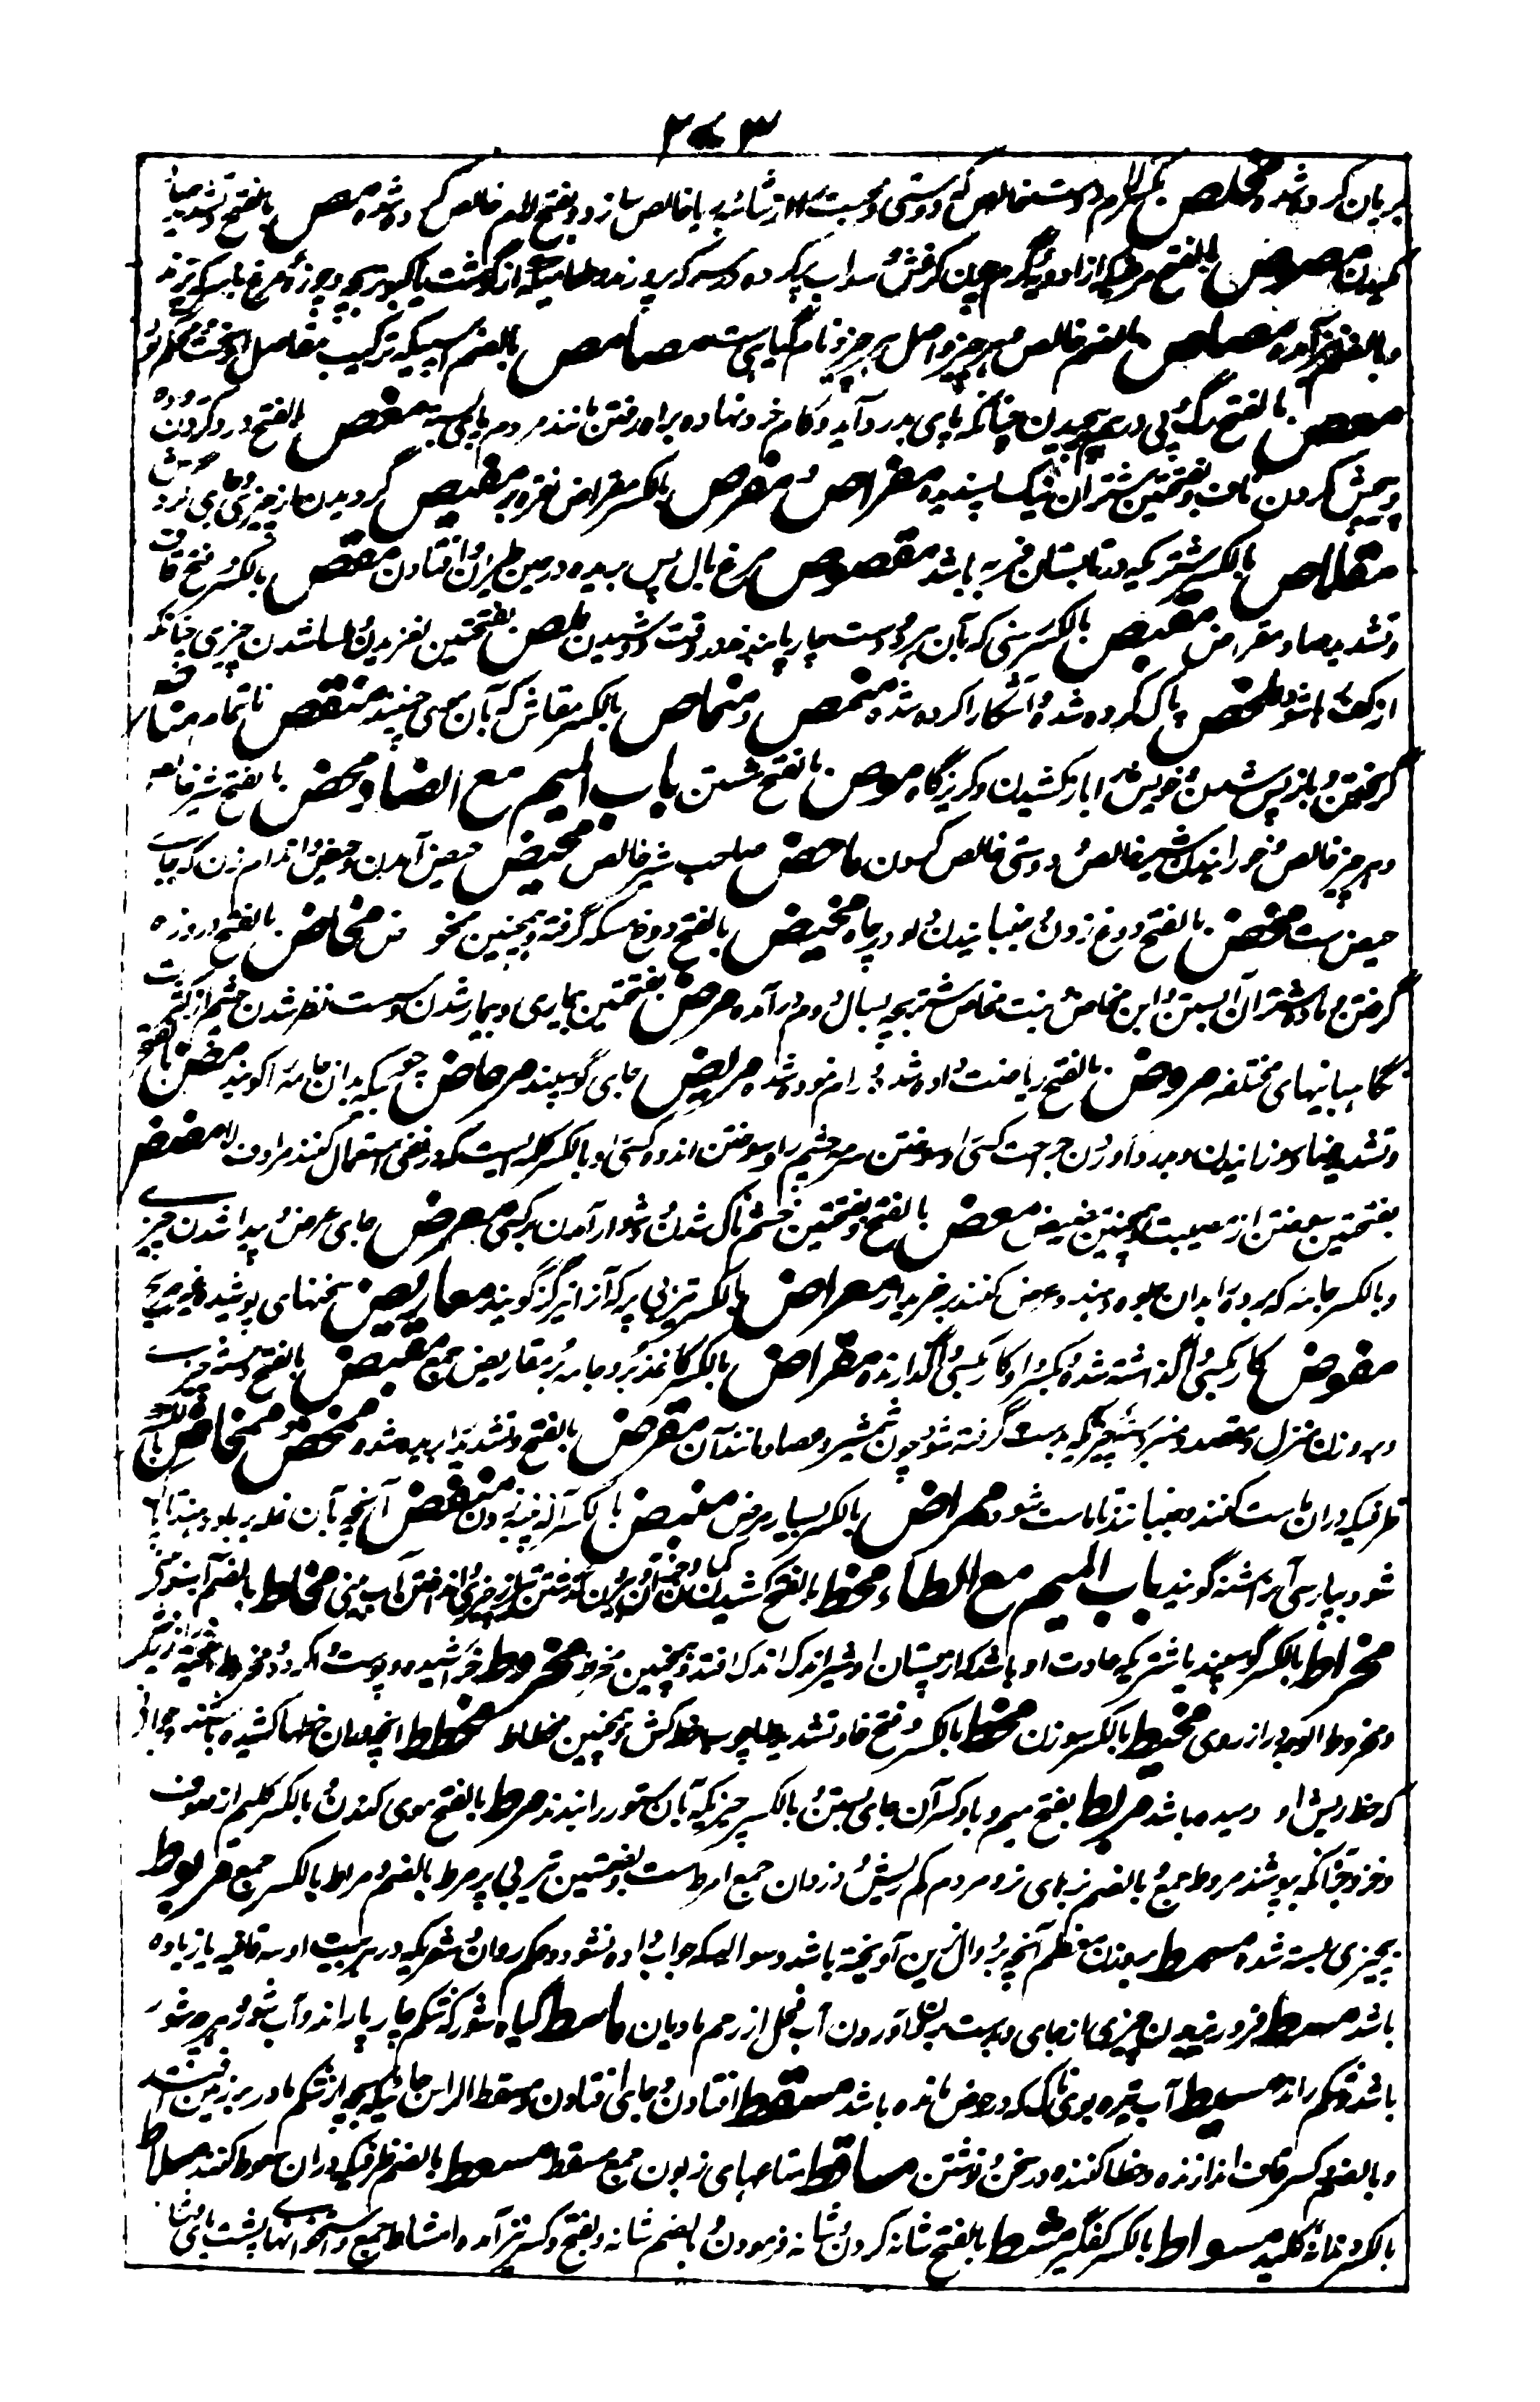 ۲۷۳
بریان کرده شده مخلص بکسر لام دوست خالص که دوستی و محبت را از شائبه ریا خالص سازد و بفتح لام خالص کرده شده مصص بالفتح و تشدید صاد
مکیدن مصوص بالفتح مرغیکه از ادویه گرم چون کرفس و سداب پر کرده در سرکه پرورند و طعامیکه از گوشت یا کبوتر بچه و جوزه مرغ با سرکه پزند
و بالضم نیز آمده مصاص بالضم خالص هر چیز و اصل هر چیز و نام گیاهی ست مصامص بالضم اسپیکه ترکیب مفاصل او سخت محکم بود
معص بالفتح رگ و پی در هم پیچیدن چنانکه پای بدرد آید و گام خرد نهاده براه رفتن مانند مردم پای بسته مغص بالفتح درد کردن روده
و پیچش کردن ناف و بفتحتین شتران نیک پسندیده مفراص و مفرص بالکسر مقراض نقره بر مفیص گردیدن از چیزی و جای گریز
مقلاص بالکسر شتریکه در تابستان فربه باشد مقصوص مرغ بال پس بریده و در عین طیران افتادن مقص بالکسر و فتح قاف
و تشدید صاد مقراض مقبص بالکسر رسنی که بآن هر دو دست چارپا بندند در وقت دوشیدن ملص بفتحتین لغزیدن و املس شدن چیزی چنانکه
از کف رها شود ملخص پاک کرده شده و آشکارا کرده شده منمص و منماص بالکسر منقاش که بآن موی چینند منتقص ناتمام مناص
گریختن و باز پس شدن و خویش را باز کشیدن و گریزگاه موص بالفتح شستن باب المیم مع الضاد محض بالفتح شیر خالص
و هر چیز خالص و خورانیدن شیر خالص و دوستی خالص کردن ماحض صاحب شیر خالص محیض حیض آمدن و حیض و اندام زن که جای
حیض ست مخض بالفتح دوغ زدن و جنبانیدن دلو در چاه مخیض بالفتح دوغ مسکه گرفته و همچنین ممخوض مخاض بالفتح درد زه
گرفتن و ماده شتران آبستن و ابن مخاض و بنت مخاض شتر بچه بسال دوم درآمده مرض بفتحتین بیماری و بیمار شدن و سست نظر شدن چشم از کثرت
نگاهبانیهای مختلفه مروض بالفتح ریاضت داده شده و رام نموده شده مربض جای گوسپند مرحاض چوبیکه بدان جامه را کوبند مض بالفتح
و تشدید ضاد سوزانیدن و بدرد آوردن جراحت کسی را و سوختن سرمه چشم را و سوختن اندوه کسی را و بالکسر کلمه ایست که در نفی استعمال کنند مرادف لا مضض
بفتحتین سوختن از مصیبت و همچنین مضیض معض بالفتح و بفتحتین خشمناک شدن و دشوار آمدن بر کسی معرض جای عرض و پیدا شدن چیزی
و بالکسر جامه که برده را بدان جلوه دهند و عرض کنند بر خریدار معراض بالکسر تیر بی پر که آنرا تیر گز گویند معاریض سخنهای پوشیده غیر صریح
مفوض کار بکسی واگذاشته شده و بکسر واو کار بکسی واگذارنده مقراض بالکسر کاغذ بر و جامه بر مقاریض جمع مقبض بالفتح دسته چیزی
و بر وزن منزل و مقصد و منبر دسته چیزیکه بدست گرفته شود چون شمشیر و عصا و مانند آن مقرض بالفتح و تشدید را بریده شده ممخض و ممخاض بالکسر آن
ظرفیکه دران ماست کنند و بجنبانند تا ماست شود ممراض بالکسر بسیار مرض منبض بالکسر آلت پنبه زدن منفض آنچه بآن غله بر باد دهند تا پاک
شود و بپارسی آنرا شنه گویند باب المیم مع الطاء محط بالفتح کشیدن کمان و بیرون گذشتن تیر از چیزی و انداختن آب بینی مخاط بالضم آب بینی
مخراط بالکسر گوسپند یا شتریکه عادت او باشد که از پستان او شیر اندک اندک افتد و همچنین مخرط مخروط خراشیده و پوست دور کرده
و مخروط الوجه دراز روی مخیط بالکسر سوزن مخط بالکسر و فتح خا و تشدید طا چوب خط کش و همچنین مخطاط مخطط آنچه دران خطها کشیده باشند و جوانی
که خط ریش او دمیده باشد مربط بفتح میم و با و کسر آن جای بستن و بالکسر چیزیکه بآن ستور را بندند مرط بالفتح موی کندن و بالکسر گلیم از صوف
و خز و جز آنکه بپوشند مروط جمع و بالضم نرهای تر و مردم کم ریش و دزدان جمع امرط ست و بضمتین تیر بی پر مرط بالضم و مراط بالکسر جمع مربوط
بچیزی بسته شده مسمط بروزن معظم آنچه بر دوال زین آویخته باشد و سوالیکه جواب داده نشود و حکم روان و شعریکه در هر بیت او سه قافیه یا زیاده
باشد مسط فرو رفتن چیزی از جای و بدست بیرون آوردن آب فحل از رحم مادیان ماسط گیاه شور که شکم چارپا را راند و آب شور
باشد و شکم راند مسیط آب تیره بویناک که در حوض مانده باشد مسقط افتادن و جای افتادن و مسقط الراس جائیکه بچه از شکم مادر بر زمین افتد
و بالضم و کسر قاف اندازنده و خطا کننده در سخن و نوشتن مساقط متاعهای زبون جمع مسقط مسعط بالضم ظرفیکه دران سعوط کنند مسلاط
بالکسر دندانه کلید مسواط بالکسر کفگیر مشط بالفتح شانه کردن و شانه فرمودن و بالضم شانه و بفتح و کسر نیز آمده امشاط جمع و استخوانهای پشت پای